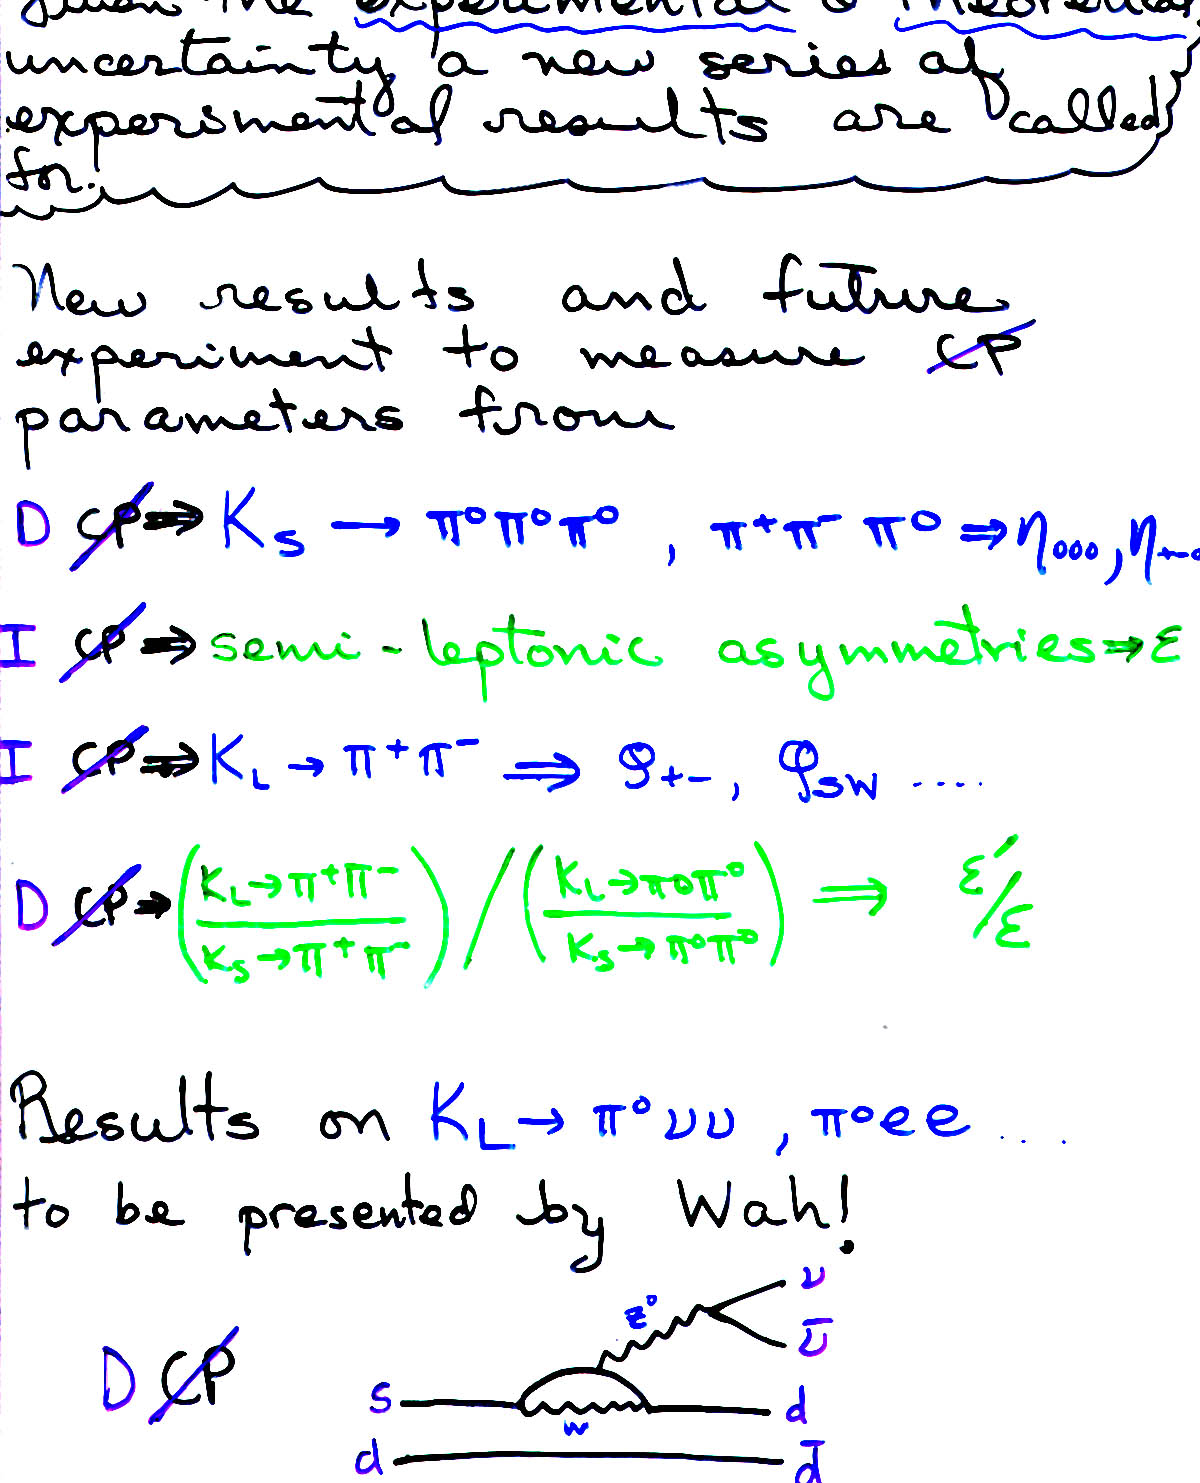 given the experimental & theoretical
uncertainty a new series of
experimental results are called
for.
New results and future
experiment to measure C̸P̸
parameters from
D C̸P̸ ⇒ K_S → π⁰π⁰π⁰, π⁺π⁻π⁰ ⇒ η₀₀₀, η₊₋₀
I C̸P̸ ⇒ semi-leptonic asymmetries ⇒ ε
I C̸P̸ ⇒ K_L → π⁺π⁻ ⇒ φ₊₋, φ_SW ....
D C̸P̸ ⇒ (K_L→π⁺π⁻ / K_S→π⁺π⁻) / (K_L→π⁰π⁰ / K_S→π⁰π⁰) ⇒ ε'/ε
Results on K_L → π⁰νν, π⁰ee ....
to be presented by Wah!
ν
Z⁰
ν̄
D C̸P̸
s d
w
d d̄